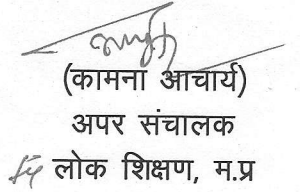 (कामना आचार्य)
अपर संचालक
लोक शिक्षण, म.प्र